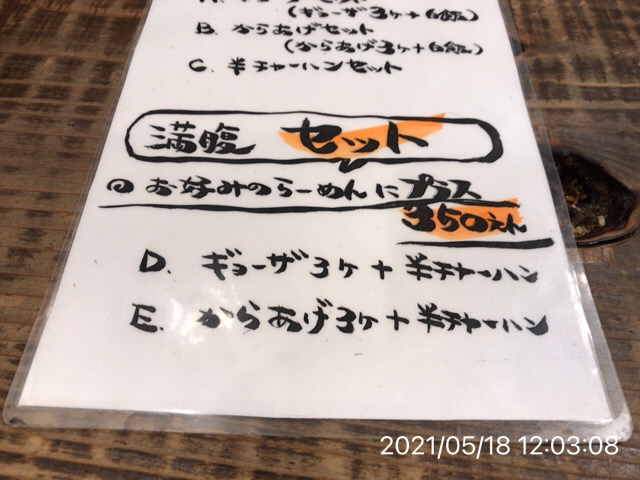 (ギョーザ3ヶ+白飯)
B. からあげセット
(からあげ3ヶ+白飯)
C. 半チャーハンセット
満腹 セット
お好みのらーめんにプラス
350えん
D. ギョーザ3ヶ+半チャーハン
E. からあげ3ヶ+半チャーハン
2021/05/18 12:03:08